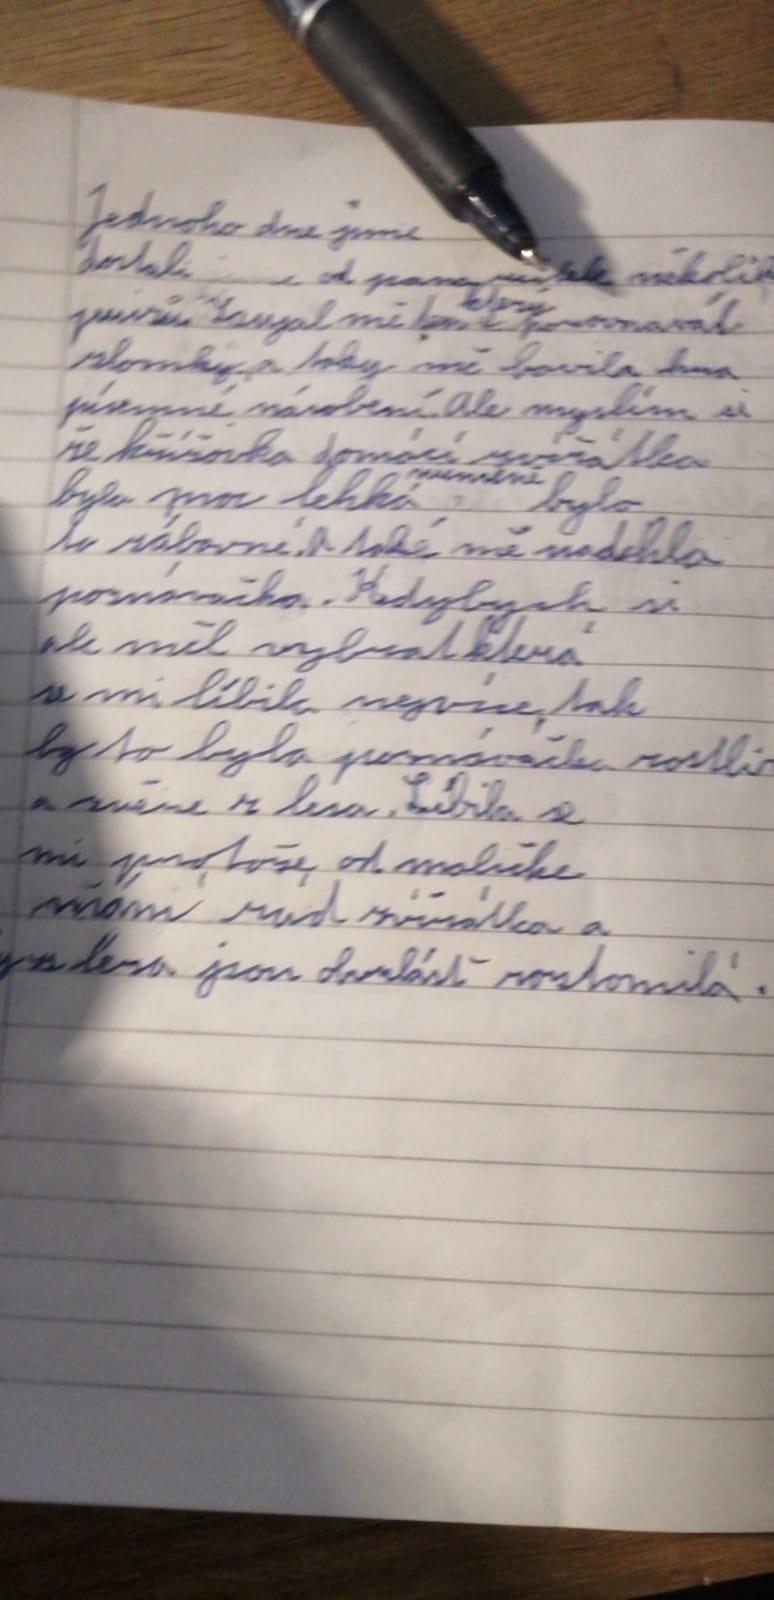 Jednoho dne jsme
dostali od pana učitele několik
který
Zaujal mě ten porovnával
zlomky, a taky mě bavila dva
písemné násobení. Ale myslím si
že křížovka domácí zvířátka
byla moc lehká nicméně bylo
to zábavné. A také mě nadchla
poznávačka. Kdybych si
ale měl vybrat která
se mi líbila nejvíce, tak
by to byla poznávačka rostlin
a zvěře z lesa. Líbila se
mi protože, od malička
mám rád zvířátka a
lesa jsou obzlášť roztomilá.